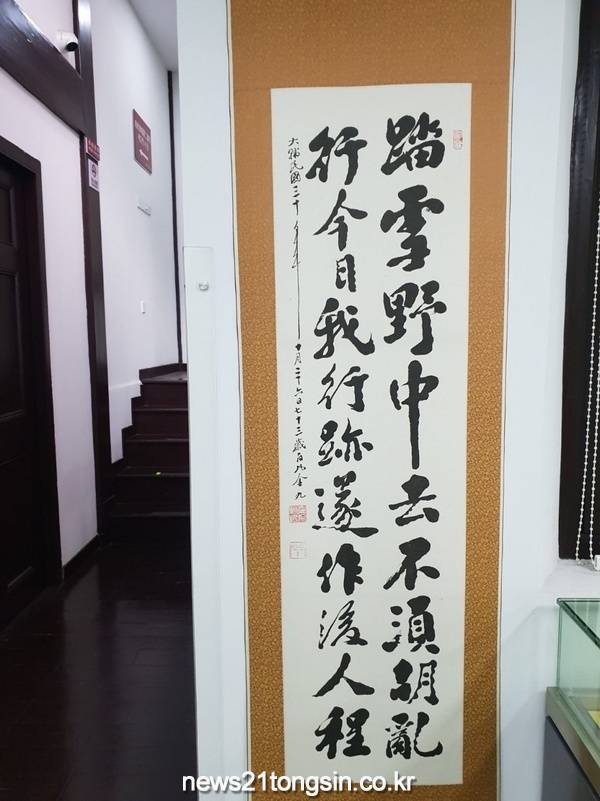 踏雪野中去不須胡亂
行今日我行跡遂作後人程
大韓民國三十年十月二十六日七十三歲白凡金九
news21tongsin.co.kr